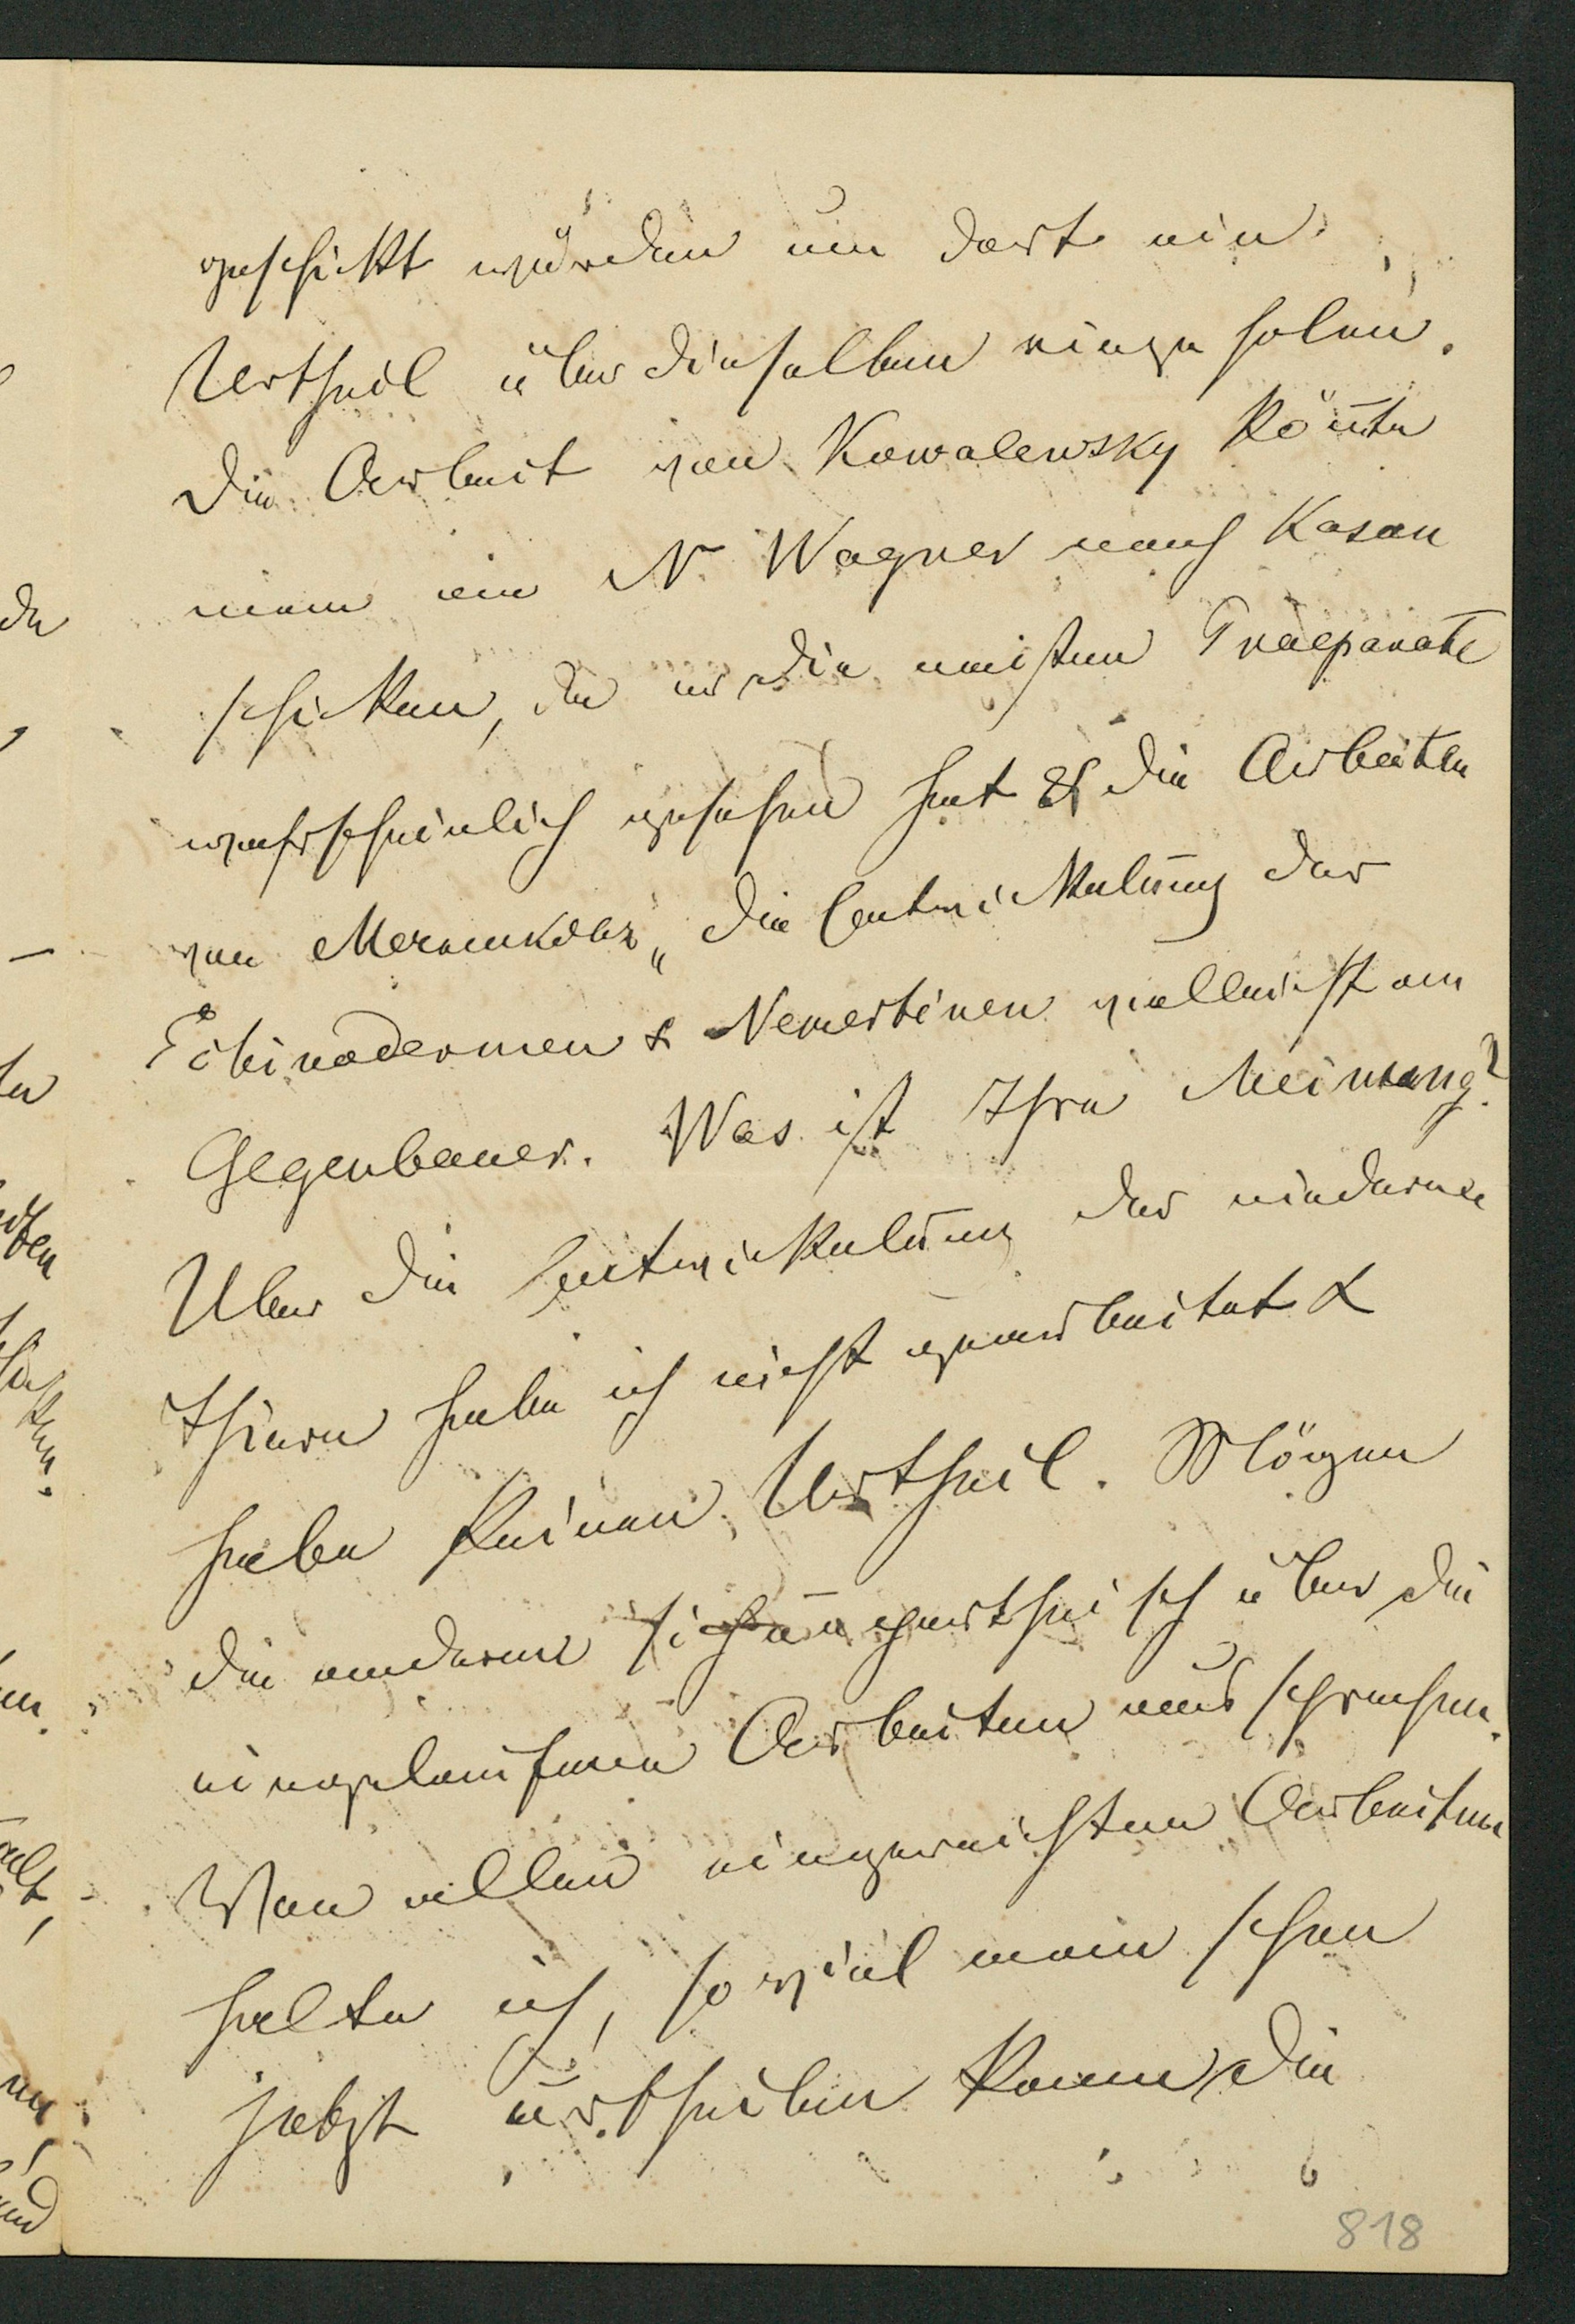 geschikt würden um dort ein
Urtheil über dieselben einge holen.
Die Arbeit von Kowalewsky könte
man an N. Wagner nach Kasan
schiken, da er die meisten Praeparate
warscheinlich gesehen hat & die Arbeiten
von „die Entwickelung der
Echinodermen & Nemertinen vielleicht an
Gegenbauer. Was ist Ihre Meinung?
Uber die Entwickelung der niederen
Thiere habe ich nicht gearbeitet &
habe keinen Urtheil. Mögen
die anderen sich unpartheisch über die
eingelaufenen Arbeiten aussprechen.
Von allen eingereichten Arbeiten
halte ich, so viel man schon
jetzt urtheilen kann die
818